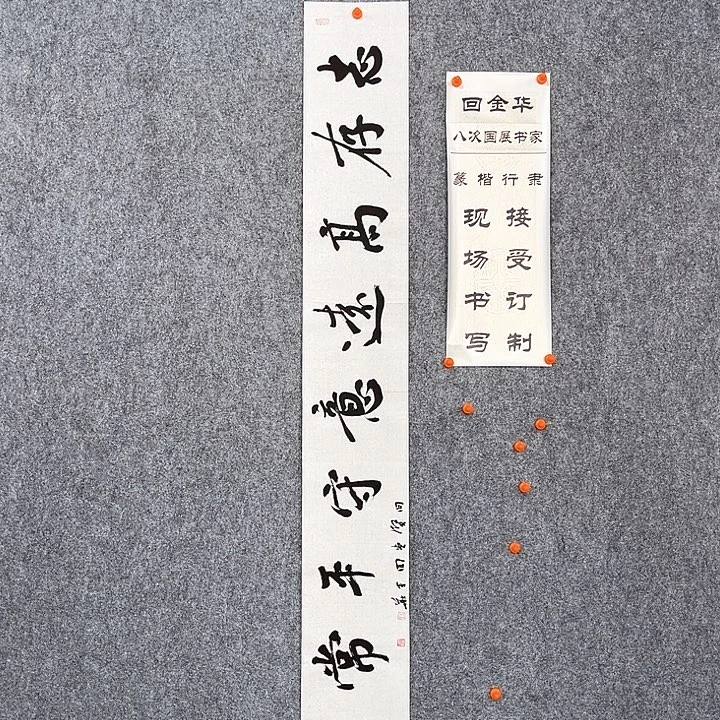 志存高远意守平常
回金华
八次国展书家
篆楷行隶
接受订制
现场书写